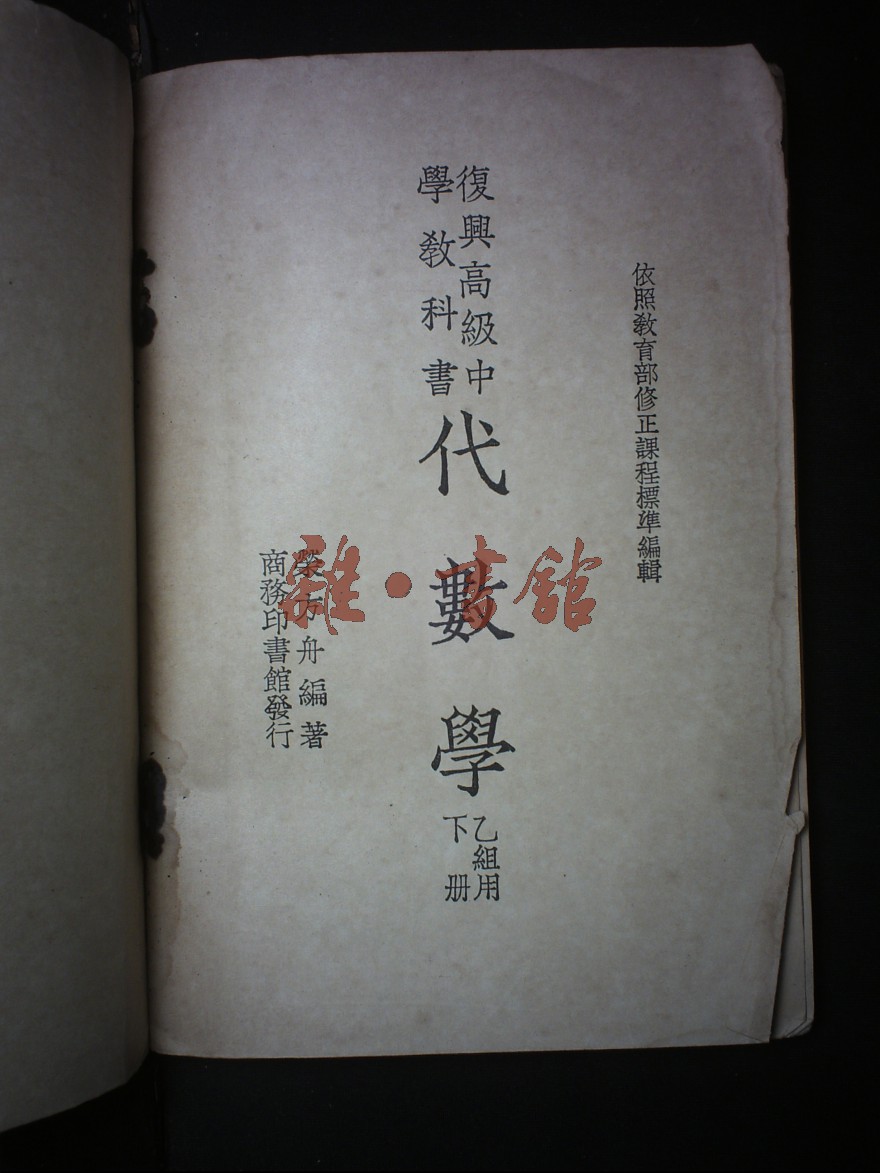 依照敎育部修正課程標準編輯
復興高級中
學敎科書
代數學
乙組用
下册
榮方舟編著
商務印書館發行
雜·書館